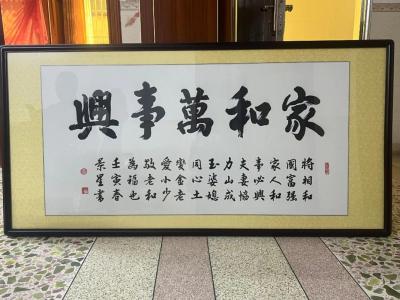 家和萬事興
將相和
國富强
家人和
事必興
夫妻協
力山成
玉婆媳
同心土
變金老
愛小少
敬老和
萬福也
壬寅春
景星書